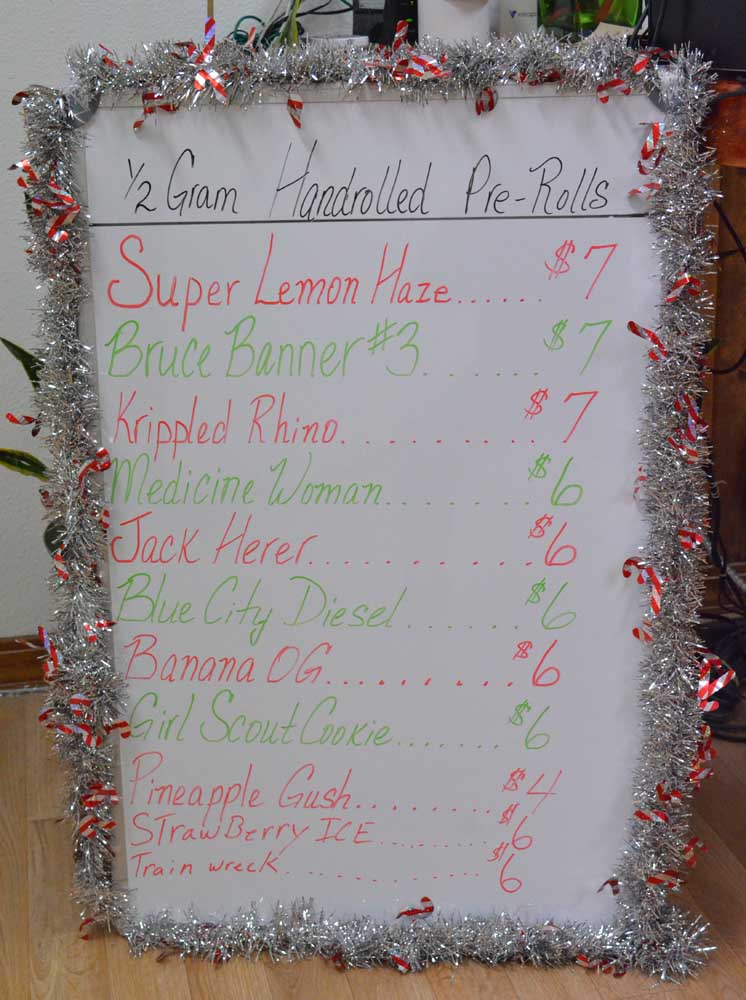 1/2 Gram Handrolled Pre-Rolls
Super Lemon Haze...... $7
Bruce Banner #3....... $7
Krippled Rhino.......... $7
Medicine Woman........ $6
Jack Herer........... $6
Blue City Diesel...... $6
Banana OG......... $6
Girl Scout Cookie....... $6
Pineapple Gush........ $4
STrawBerry ICE......... $6
Train wreck............. $6